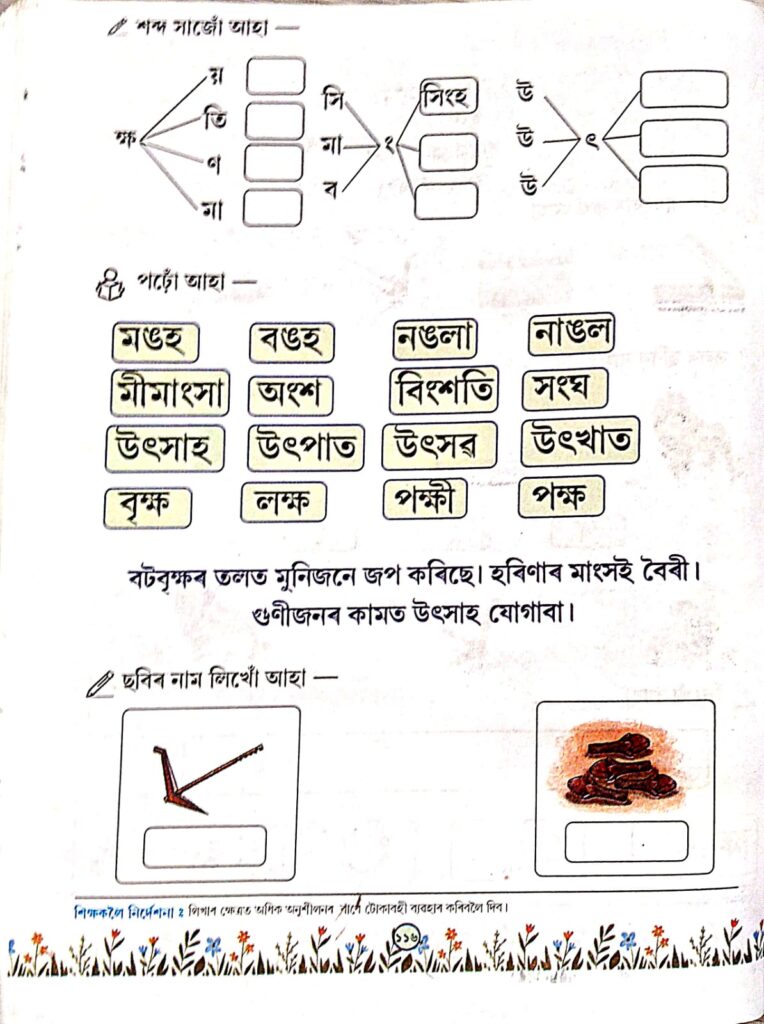 শব্দ সাজোঁ আহা —
ক্ষ
য়
তি
ণ
মা
সি
মা
ব
ং
সিংহ
উ
উ
উ
ৎ
পঢ়োঁ আহা —
মঙহ বঙহ নঙলা নাঙল
মীমাংসা অংশ বিংশতি সংঘ
উৎসাহ উৎপাত উৎসৱ উৎখাত
বৃক্ষ লক্ষ পক্ষী পক্ষ
বটবৃক্ষৰ তলত মুনিজনে জপ কৰিছে। হৰিণাৰ মাংসই বৈৰী।
গুণীজনৰ কামত উৎসাহ যোগাবা।
ছবিৰ নাম লিখোঁ আহা —
শিক্ষকলৈ নিৰ্দেশনা ঃ লিখাৰ ক্ষেত্ৰত অধিক অনুশীলনৰ বাবে টোকাবহী ব্যৱহাৰ কৰিবলৈ দিব।
১১৬